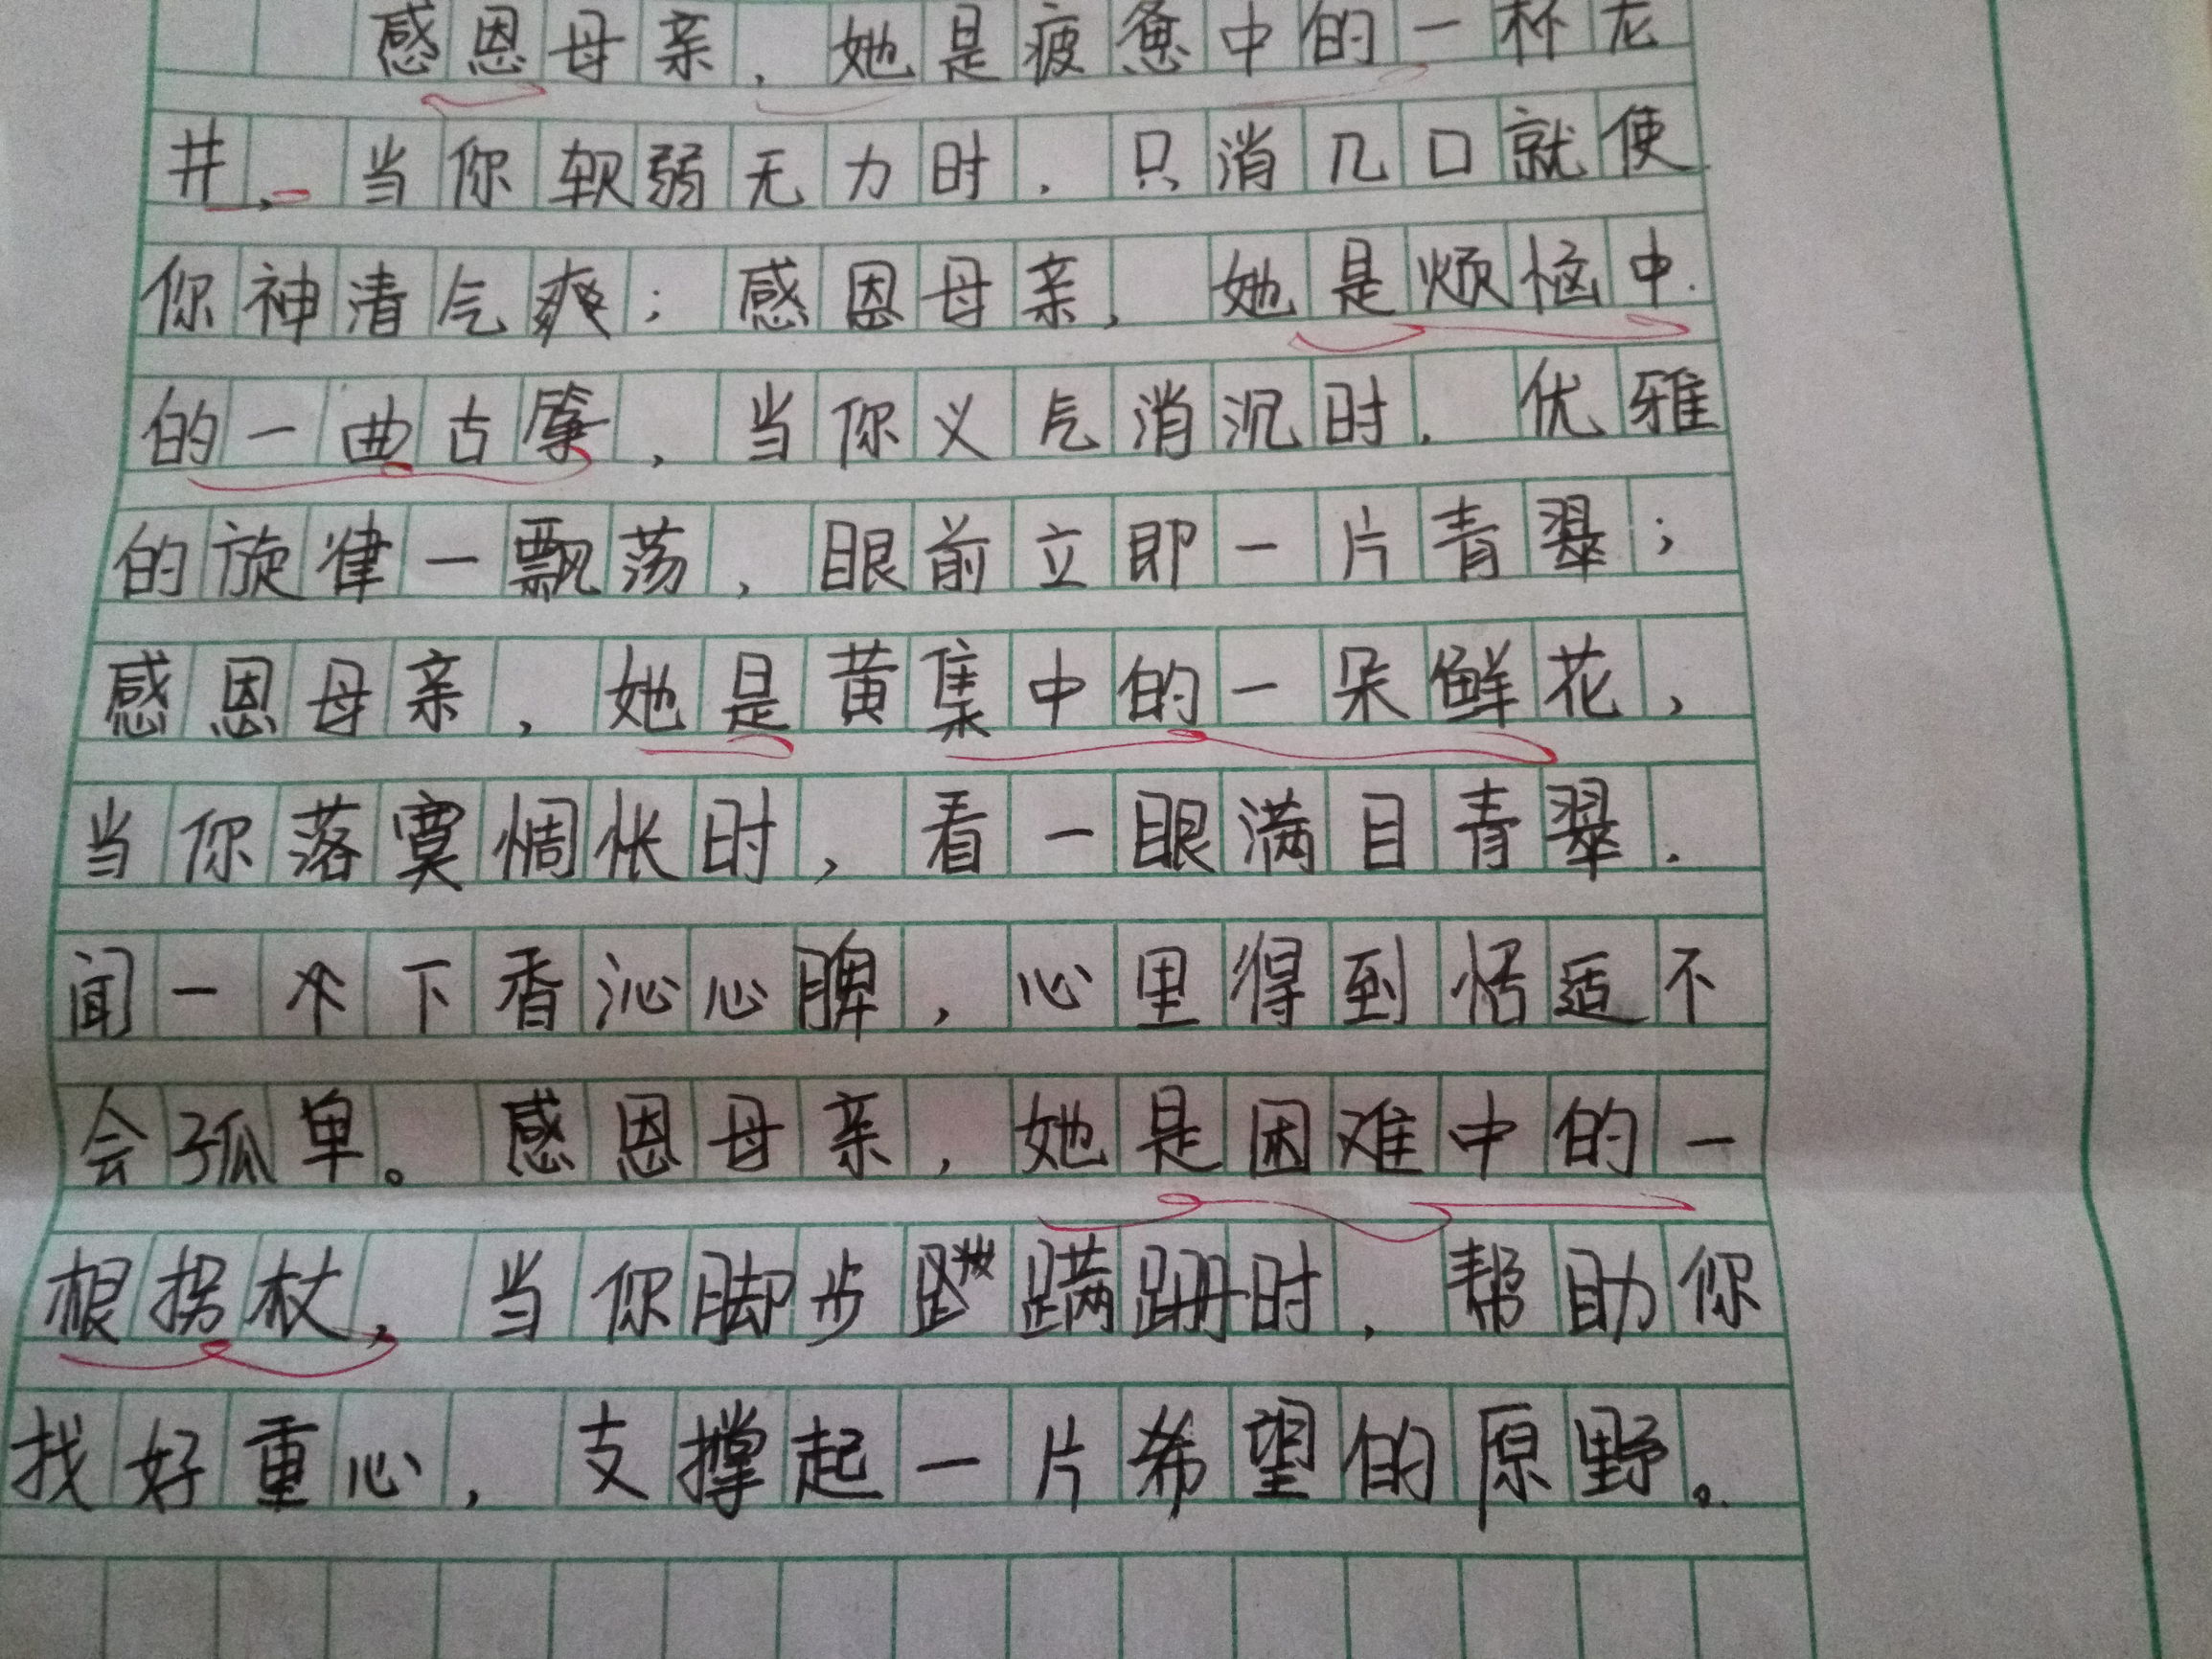 感恩母亲，她是疲惫中的一杯龙
井，当你软弱无力时，只消几口就使
你神清气爽；感恩母亲，她是烦恼中
的一曲古筝，当你义气消沉时，优雅
的旋律一飘荡，眼前立即一片青翠；
感恩母亲，她是黄集中的一朵鲜花，
当你落寞惆怅时，看一眼满目青翠，
闻一下香沁心脾，心里得到恬适不
会孤单。感恩母亲，她是困难中的一
根拐杖，当你脚步蹒跚时，帮助你
找好重心，支撑起一片希望的原野。